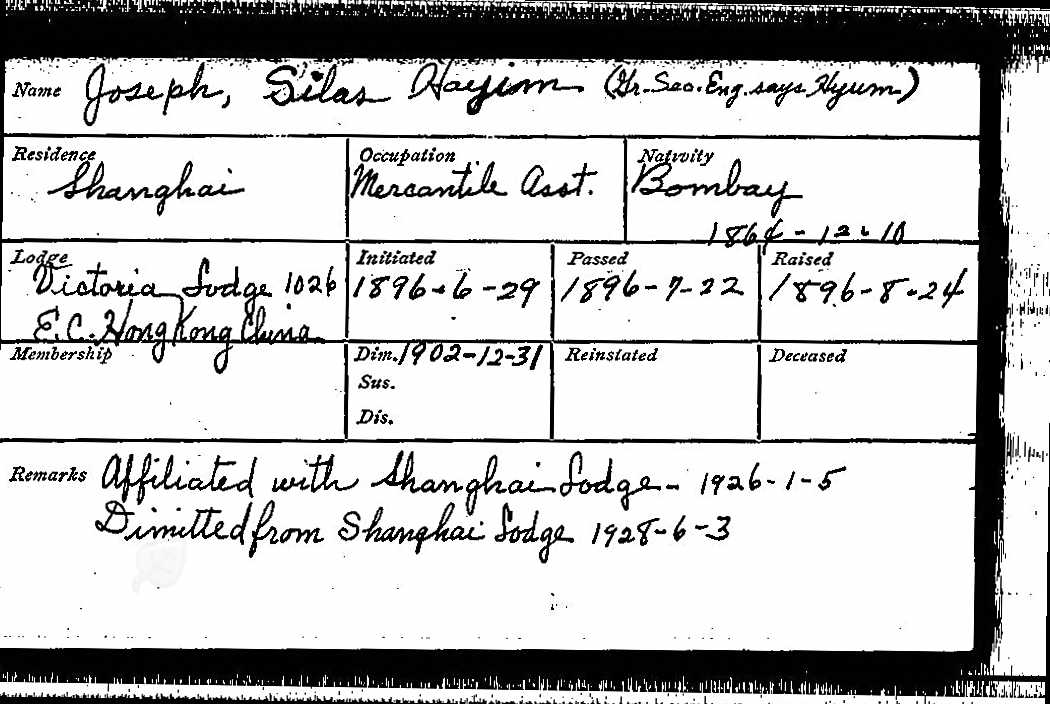 Name Joseph, Silas Hayim (Gr. Sec. Eng. says Hyum)
Residence Occupation Nativity
Shanghai Mercantile Asst. Bombay
1864-12-10
Lodge Initiated Passed Raised
Victoria Lodge 1026 1896-6-29 1896-7-22 1896-8-24
E.C. Hong Kong China
Membership Dim. 1902-12-31 Reinstated Deceased
Sus.
Dis.
Remarks Affiliated with Shanghai Lodge - 1926-1-5
Dimitted from Shanghai Lodge 1928-6-3